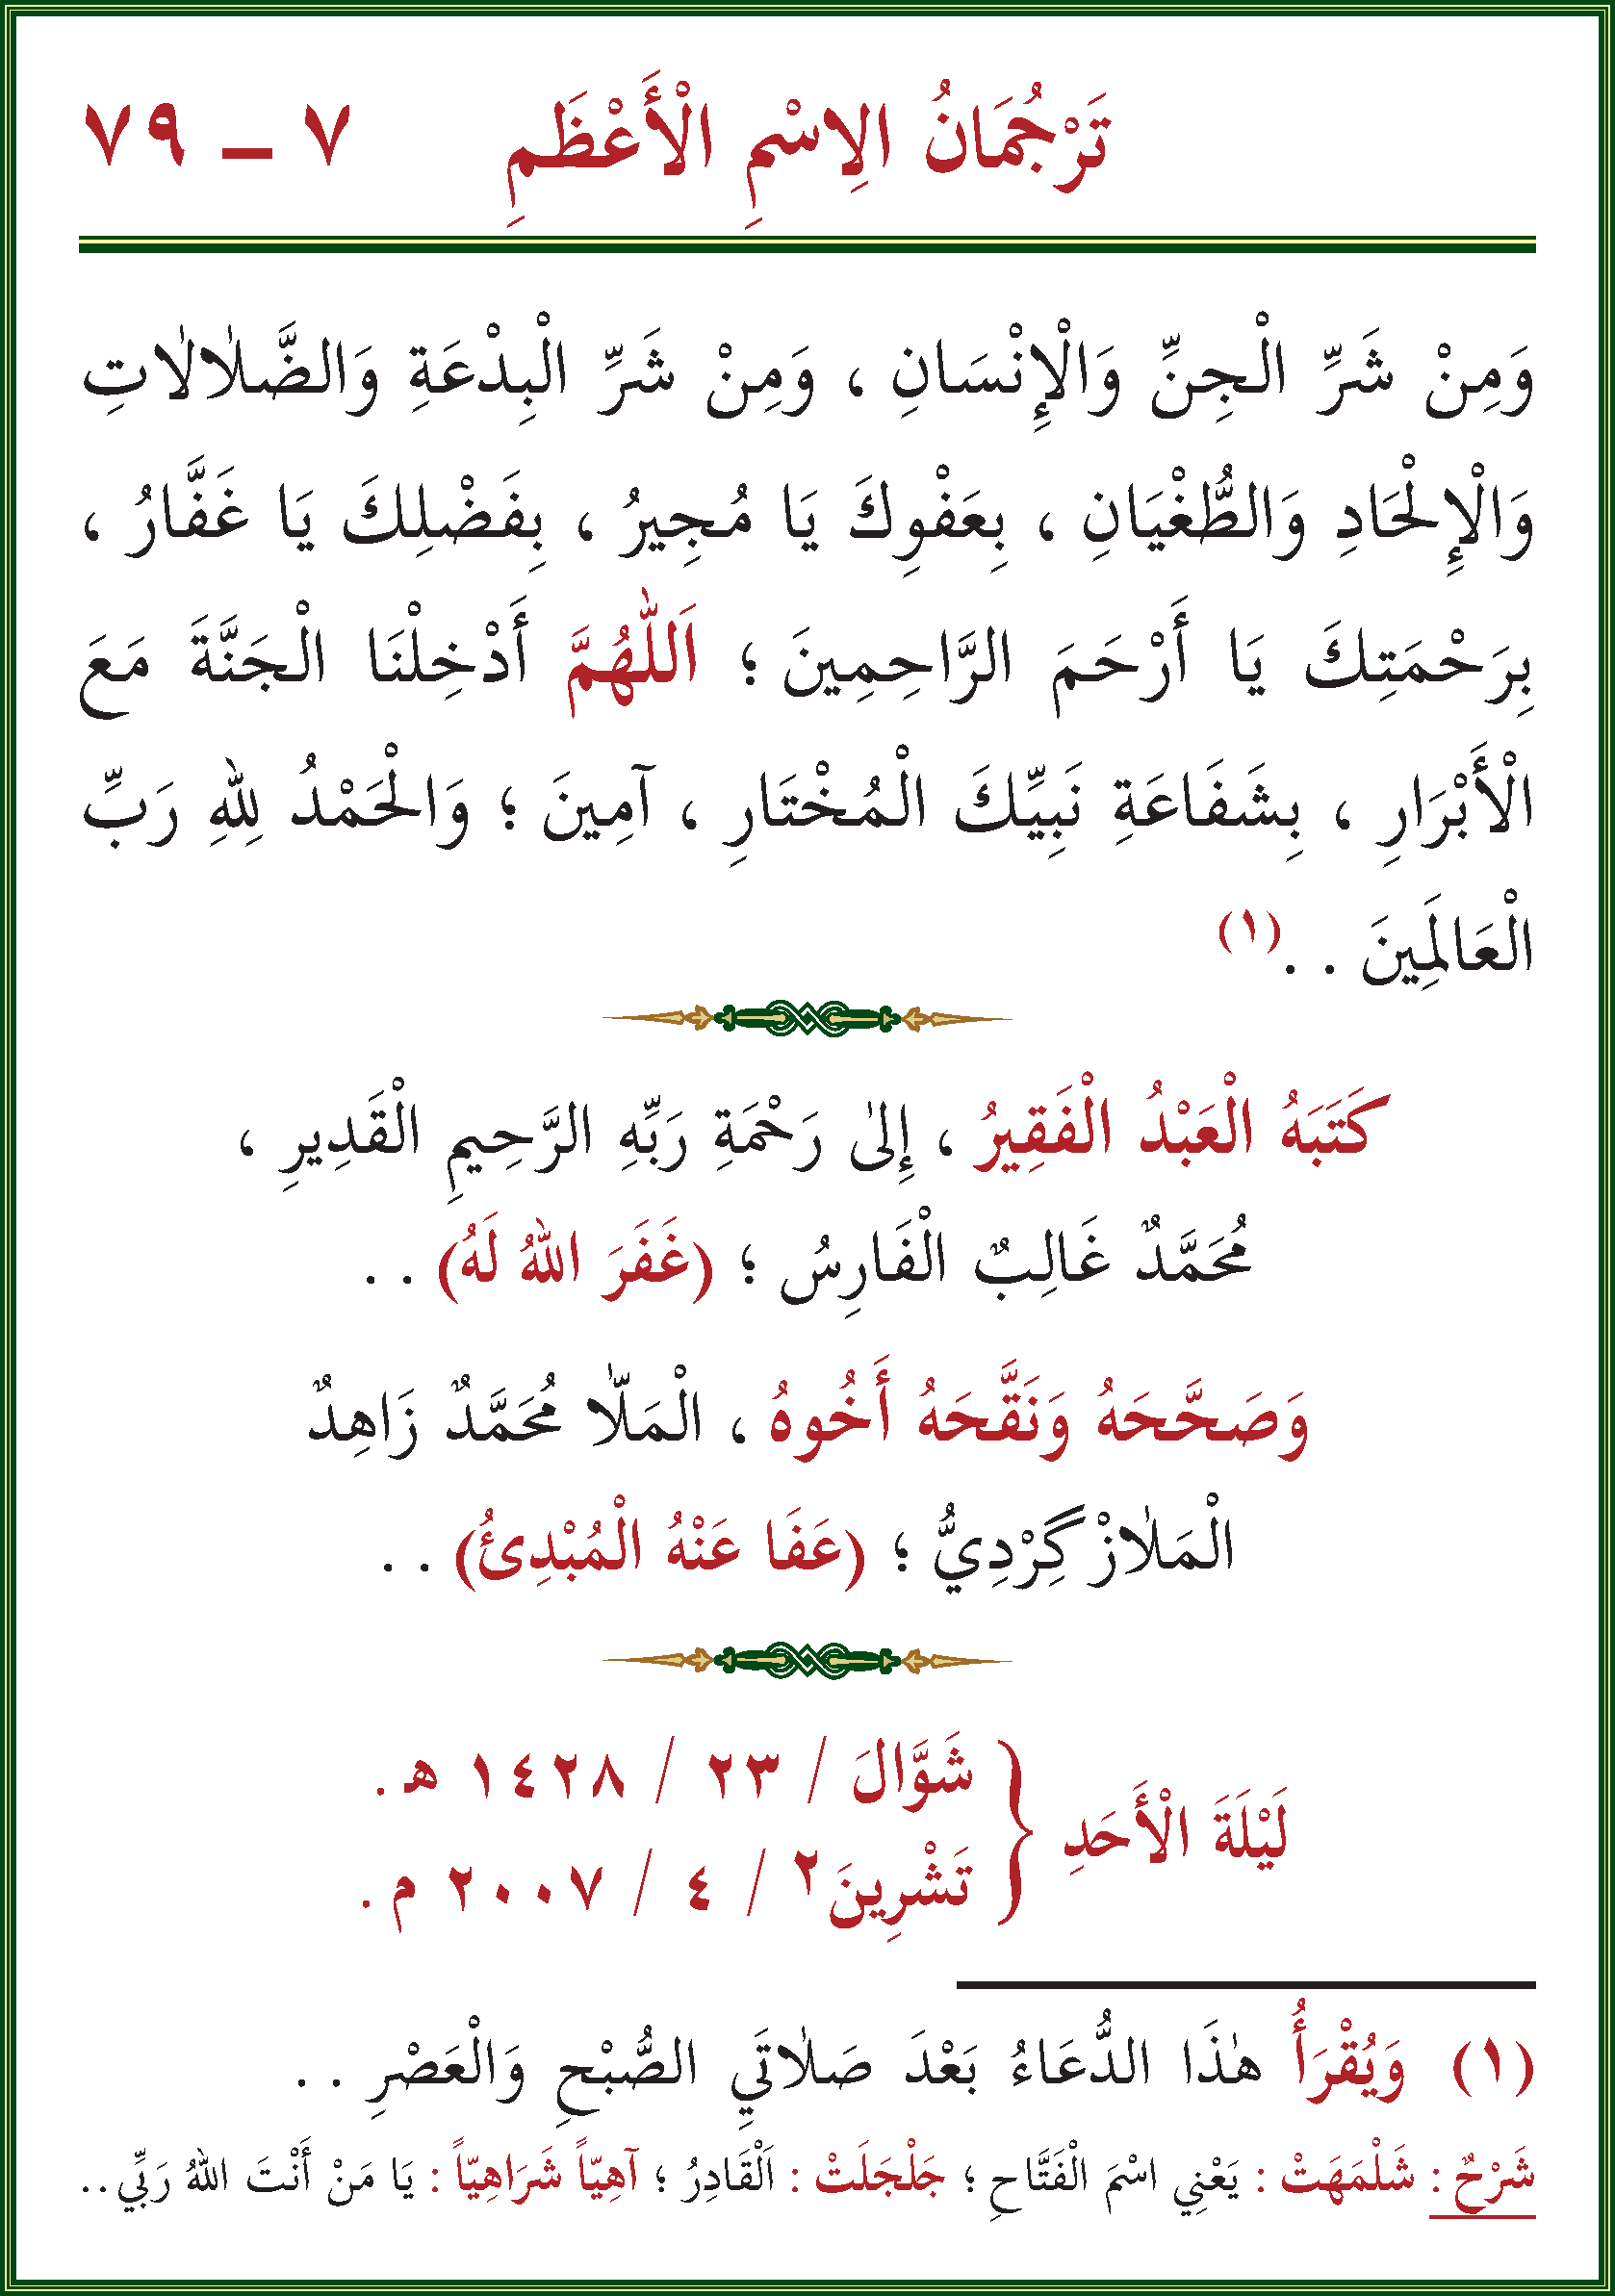 تَرْجُمَانُ الِاسْمِ الْأَعْظَمِ ٧ – ٧٩
وَمِنْ شَرِّ الْجِنِّ وَالْإِنْسَانِ ، وَمِنْ شَرِّ الْبِدْعَةِ وَالضَّلَالَاتِ
وَالْإِلْحَادِ وَالطُّغْيَانِ ، بِعَفْوِكَ يَا مُجِيرُ ، بِفَضْلِكَ يَا غَفَّارُ ،
بِرَحْمَتِكَ يَا أَرْحَمَ الرَّاحِمِينَ ؛ اَللّٰهُمَّ أَدْخِلْنَا الْجَنَّةَ مَعَ
الْأَبْرَارِ ، بِشَفَاعَةِ نَبِيِّكَ الْمُخْتَارِ ، آمِينَ ؛ وَالْحَمْدُ لِلّٰهِ رَبِّ
الْعَالَمِينَ . .(١)
كَتَبَهُ الْعَبْدُ الْفَقِيرُ ، إِلىٰ رَحْمَةِ رَبِّهِ الرَّحِيمِ الْقَدِيرِ ،
مُحَمَّدٌ غَالِبٌ الْفَارِسُ ؛ (غَفَرَ اللّٰهُ لَهُ) . .
وَصَحَّحَهُ وَنَقَّحَهُ أَخُوهُ ، الْمَلّٰا مُحَمَّدٌ زَاهِدٌ
الْمَلٰازْگِرْدِيُّ ؛ (عَفَا عَنْهُ الْمُبْدِئُ) . .
لَيْلَةَ الْأَحَدِ
شَوَّالَ / ٢٣ / ١٤٢٨ هـ .
تَشْرِينَ٢ / ٤ / ٢٠٠٧ م .
(١) وَيُقْرَأُ هٰذَا الدُّعَاءُ بَعْدَ صَلٰاتَيِ الصُّبْحِ وَالْعَصْرِ . .
شَرْحٌ : شَلْمَهَتْ : يَعْنِي اسْمَ الْفَتَّاحِ ؛ جَلْجَلَتْ : اَلْقَادِرُ ؛ آهِيّاً شَرَاهِيّاً : يَا مَنْ أَنْتَ اللّٰهُ رَبِّي . .